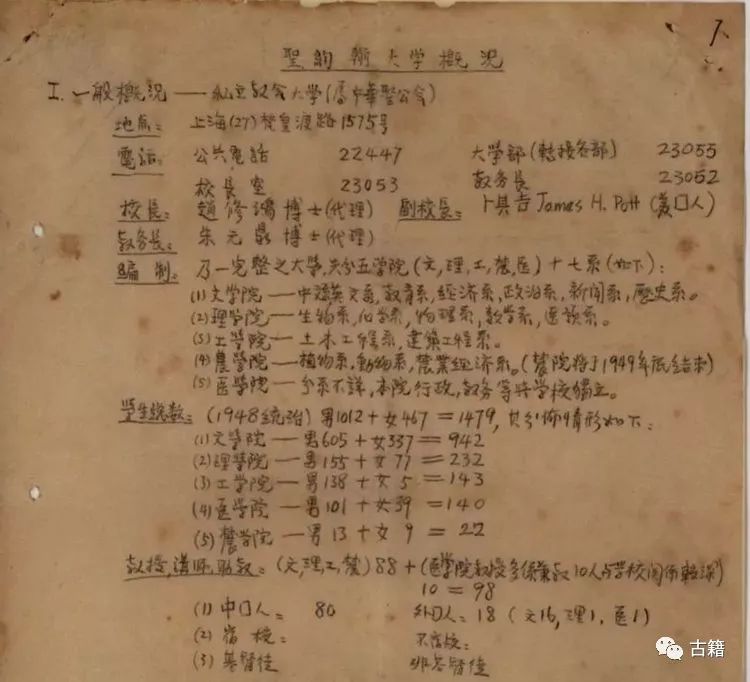 7
聖約翰大学概况
I. 一般概况 —— 私立教会大學(属中華聖公会)
地点: 上海(27)梵皇渡路1575号
電話: 公共電話 22447 大學部(轉接各部) 23055
校長室 23053 教务長 23052
校長: 趙修鴻博士(代理) 副校長: 卜其吉 James H. Pott (美囗人)
教务長: 朱元鼎博士(代理)
編制: 乃一完整之大學,共分五学院(文,理,工,農,医)十七系(如下):
(1) 文学院 — 中 英文系,教育系,經济系,政治系,新聞系,歷史系。
(2) 理学院 — 生物系,化学系,物理系,数学系, 系。
(3) 工学院 — 土木工程系,建築工程系。
(4) 農學院 — 植物系,動物系,農業經济系。(農院将于1949年底结束)
(5) 医學院 — 分系不詳,本院行政,教务等与学校獨立。
學生總数: (1948統治) 男1012+女467=1479, 其分佈情形如下:
(1) 文學院 — 男605+女337=942
(2) 理學院 — 男155+女77=232
(3) 工学院 — 男138+女5=143
(4) 医學院 — 男101+女39=140
(5) 農学院 — 男13+女9=22
教授,講師,助教: (文,理,工,農)88+(医学院教授多係兼教10人与学校関係較深)
10=98
(1) 中囗人: 80 外囗人: 18 (文16,理1,医1)
(2) 宿校: 不宿校:
(3) 基督徒 非基督徒
古籍